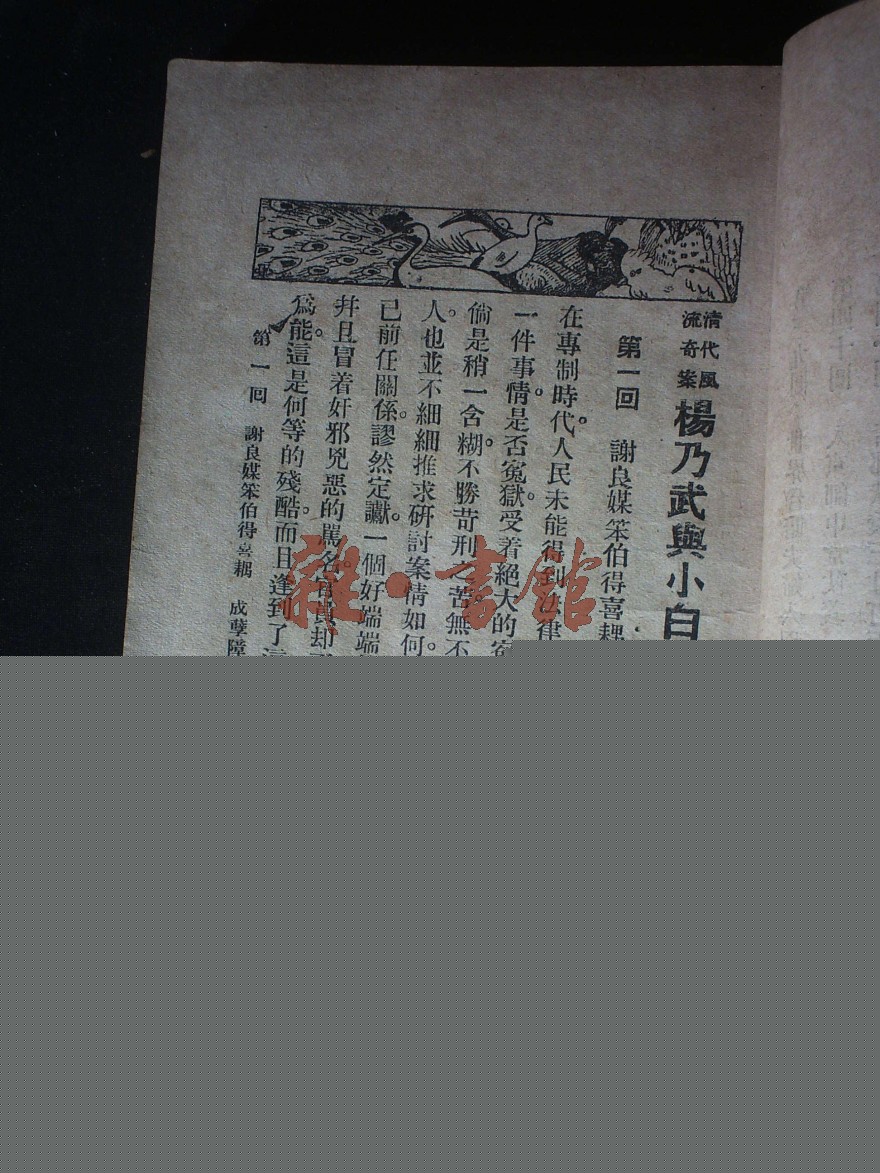 清代風
流奇案
楊乃武與小白
第一回 謝良媒笨伯得喜耦
在專制時代。人民未能得到法律
一件事情。是否冤獄。受着絕大的
倘是稍一含糊。不勝苛刑之苦。無不
。人也並不細細推求研討案情如何。
已前任關係。謬然定讞。一個好端端
幷且冒着奸邪兇惡的罵名。官員却
爲能。這是何等的殘酷。而且逢到了這
第一回 謝良媒笨伯得喜耦 成孽障
雜·書館